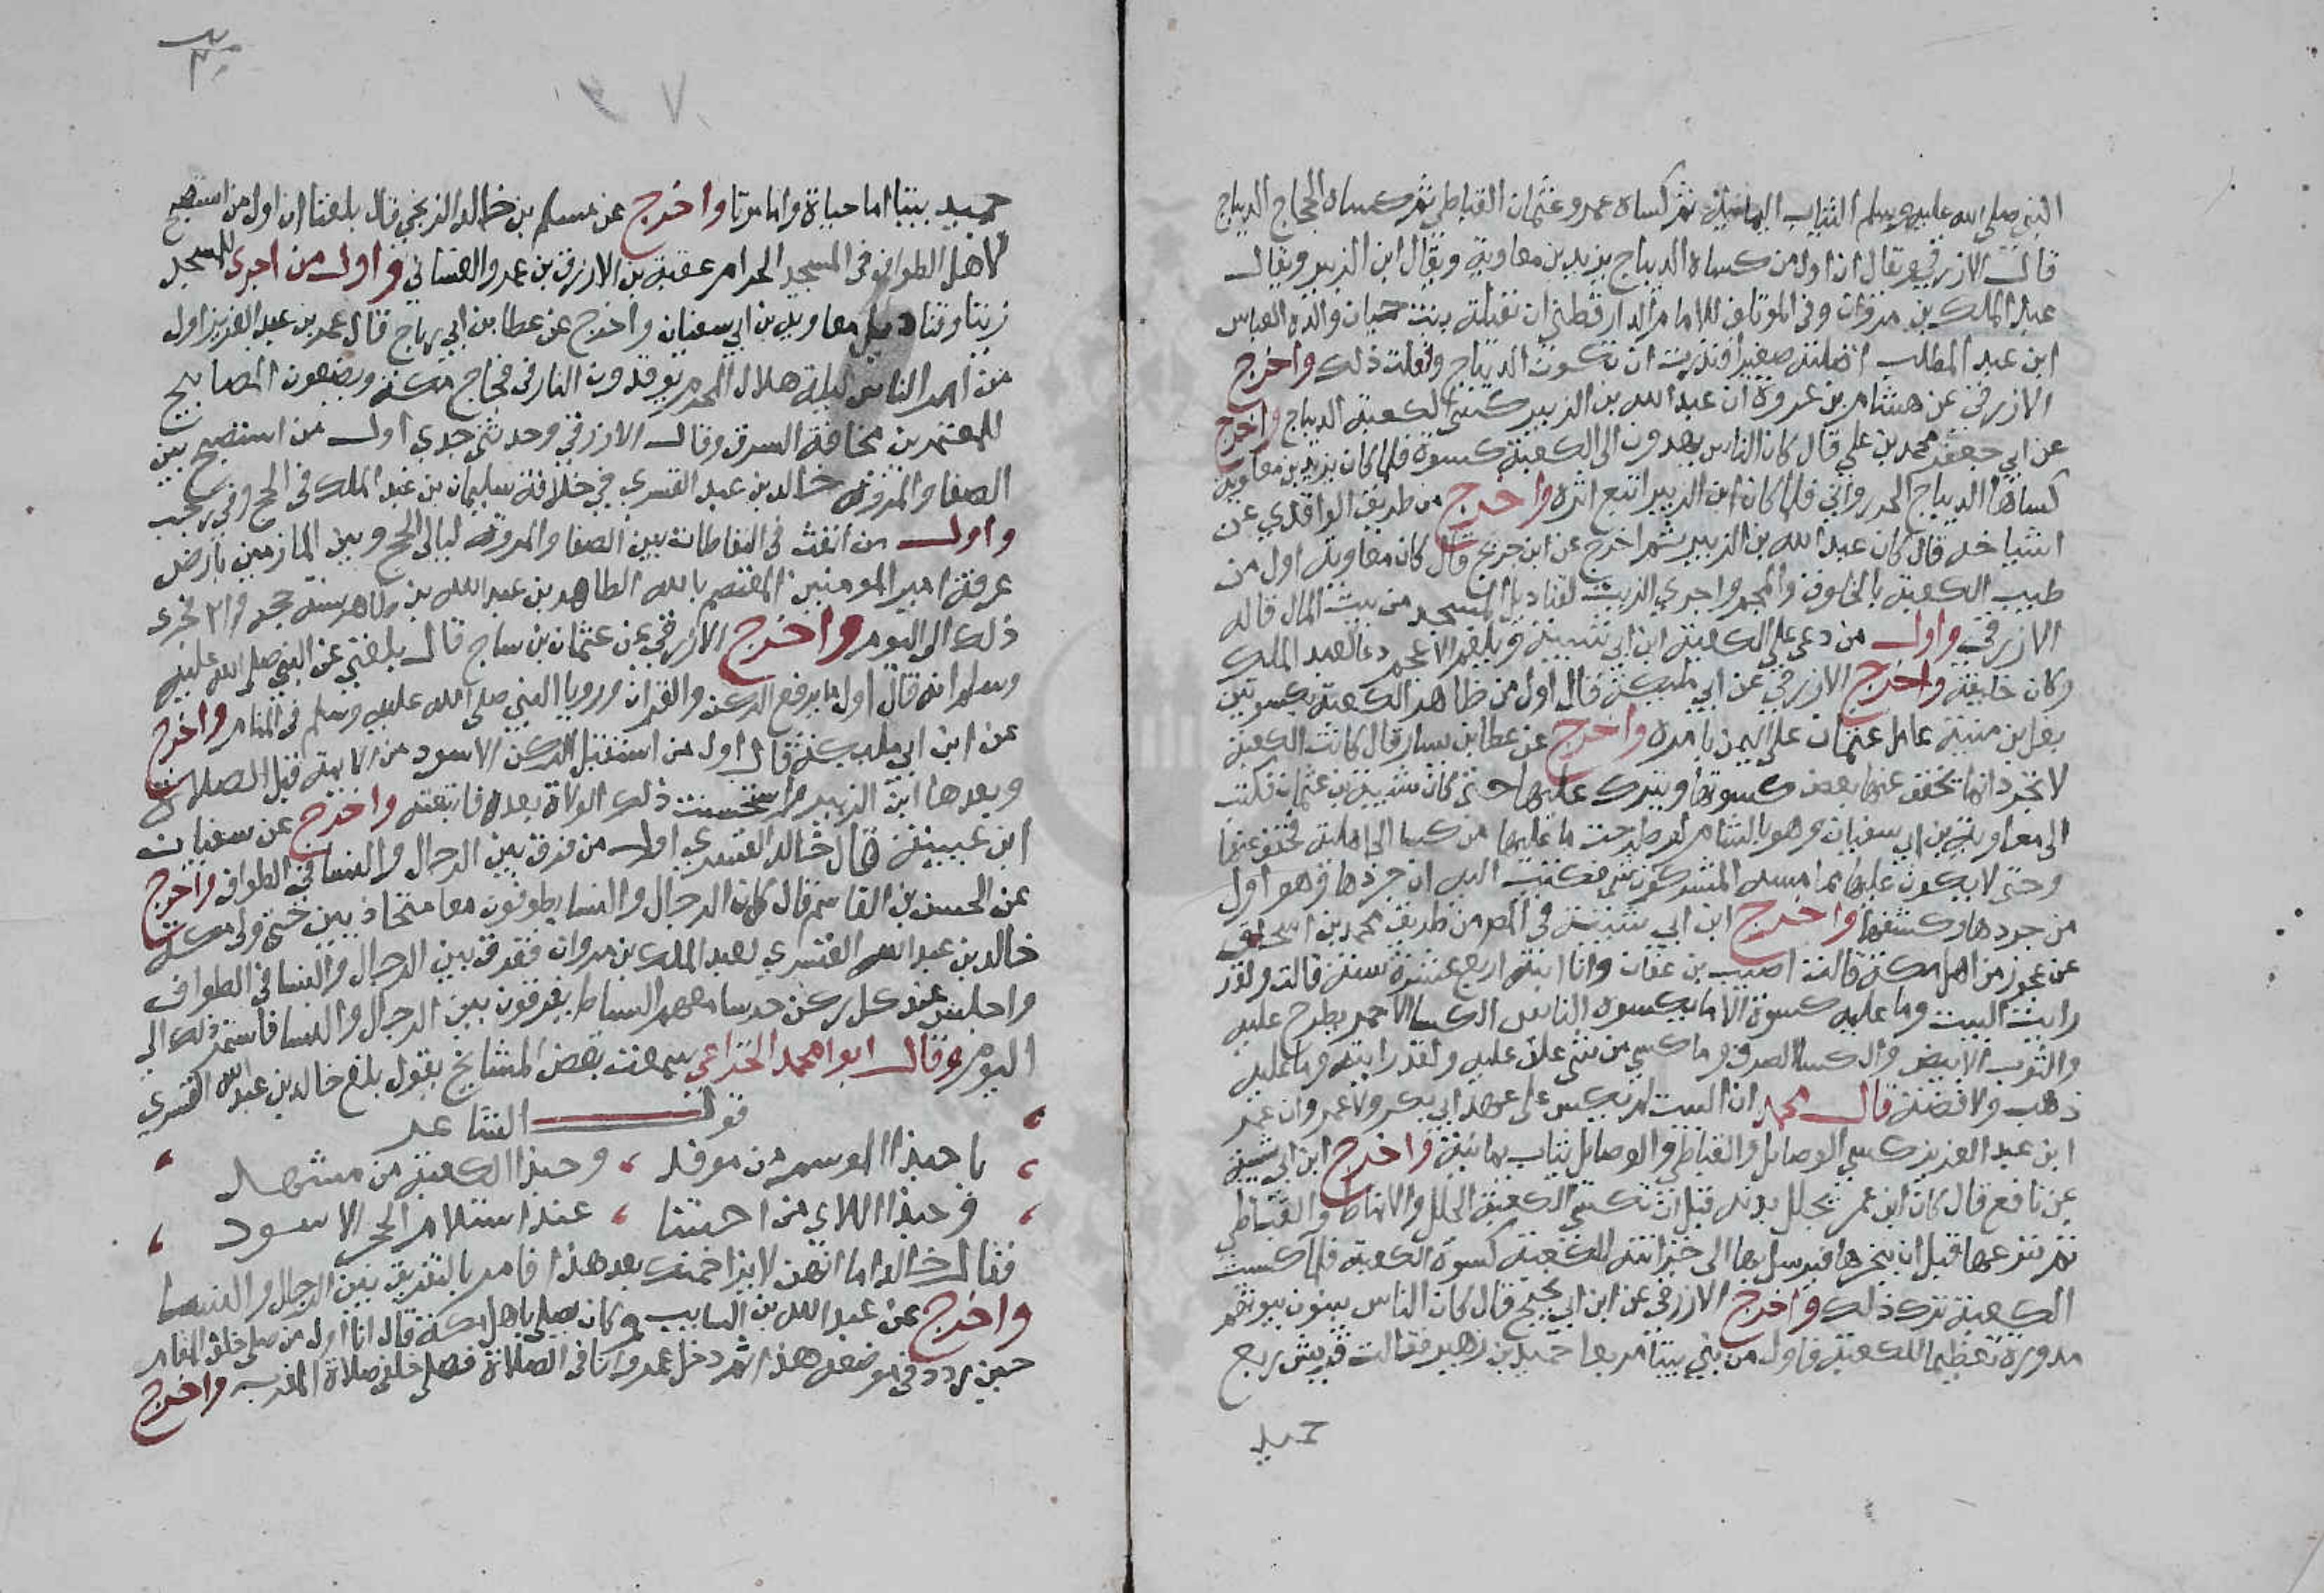 النبي صلى الله عليه وسلم الثياب اليمانية ثم كساه عمر وعثمان القباطي ثم كساه الحجاج الديباج
قال الازرقي ويقال ان اول من كساه الديباج يزيد بن معاوية ويقال ابن الزبير ويقال
عبد الملك بن مروان وفي المؤتلف للامام الدارقطني ان نفيلة بنت حبان والدة العباس
ابن عبد المطلب اضلته صغيرا فنذرت ان تكسوت الديباج وفعلت ذلك واخرج
الازرقي عن هشام بن عروة ان عبد الله بن الزبير كسى الكعبة الديباج واخرج
عن ابي جعفر محمد بن علي قال كان الناس يهدون الى الكعبة كسوة فلما كان يزيد بن معاوية
كساها الديباج الخسرواني فلما كان ابن الزبير اتبع اثره واخرج من طريق الواقدي عن
اشياخه قال كان عبد الله بن الزبير ثم اخرج عن ابن جريج قال كان معاوية اول من
طيب الكعبة بالخلوق والمجمر واجرى الزيت لقناديل المسجد من بيت المال قاله
الازرقي واول من دعى على الكعبة ابن ابي شيبة وبلغهم الاعجم دعا لعبد الملك
وكان خليفة واخرج الازرقي عن ابي مليكة قال اول من ظاهر الكعبة بكسوتين
يعلى بن منية عامل عثمان على اليمن بامره واخرج عن عطا بن يسار قال كانت الكعبة
لا تجرد انما تخفف عنها بعض كسوتها ويترك عليها حتى كان شيبة بن عثمان فكتب
الى معاوية بن ابي سفيان وهو بالشام لو طرحت ما عليها من كسا الجاهلية تخفف عنها
وحتى لا يكون عليها مما مسه المشركون شي فكتب اليه ان جردها فهو اول
من جردها وكشفها واخرج ابن ابي شيبة في المصر من طريق محمد بن اسحاق
عن عجوز من اهل مكة قالت اصيب بن عفان وانا ابنة اربع عشرة سنة قالت ولقد
رايت البيت وما عليه كسوة الا ما يكسوه الناس الكسا الاحمر يطرح عليه
والثوب الابيض والكسا الصوف وما كسي من شي علا عليه ولقد رايته وما عليه
ذهب ولا فضة قال محمد ان البيت لم يكس على عهد ابي بكر ولا عمر وان عمر
ابن عبد العزيز كسي الوصايل والقباطي والوصايل ثياب يمانية واخرج ابن ابي شيبة
عن نافع قال كان ابن عمر يجلل بدنه قبل ان تكسى الكعبة الحلل والانماط والقباطي
ثم ينزعها قبل ان ينحرها فيرسل بها الى خزانة الكعبة كسوة الكعبة فلما كسيت
الكعبة ترك ذلك واخرج الازرقي عن ابن ابي نجيح قال كان الناس يبنون بيوتهم
مدورة تعظيما للكعبة فاول من بنى بيتا مربعا حميد بن زهير فقالت قريش ربع
حميد
حميد بيتا اما حياة واما موتا واخرج عن مسلم بن خالد الزنجي قال بلغنا ان اول من استصبح
لاهل الطواف في المسجد الحرام عقبة بن الازرق بن عمرو الغساني واول من اجرى للمسجد
زيتا وقناديل معاوية بن ابي سفيان واخرج عن عطا بن ابي رباح قال عمر بن عبد العزيز اول
من امر الناس ليلة هلال المحرم يوقدون النار في فجاج مكة ويضعون المصابيح
للمعتمرين مخافة السرق وقال الازرقي وحدثني جدي اول من استصبح بين
الصفا والمروة خالد بن عبد القسري في خلافة سليمان بن عبد الملك في الحج وفي رجب
واول من اتخذ في النفاطات بين الصفا والمروة ليالي الحج وبين المازمين بارض
عرفة امير المومنين المعتصم بالله الطاهر بن عبد الله بن طاهر سنة حجه فجرى
ذلك الى اليوم واخرج الازرقي عن عثمان بن ساج قال بلغني عن النبي صلى الله عليه
وسلم انه قال اول ما يرفع الركن والقران ورويا النبي صلى الله عليه وسلم في المنام واخرج
عن ابن ابي مليكة قال اول من استقبل الركن الاسود من الايمة قبل الصلاة
وبعدها ابن الزبير واستحسنت ذلك الولاة بعده فاتبعته واخرج عن سفيان
ابن عيينة قال خالد القسري اول من فرق بين الرجال والنسا في الطواف واخرج
عن الحسن بن القاسم قال كان الرجال والنسا يطوفون معا متحاذيين حتى ولى مكة
خالد بن عبد الله القسري لعبد الملك بن مروان ففرق بين الرجال والنسا في الطواف
واجلس عند كل ركن حرسا معهم السياط يفرقون بين الرجال والنسا فاستمر ذلك الى
اليوم وقال ابو محمد الخزاعي سمعت بعض المشايخ يقول بلغ خالد بن عبد الله القسري
قول الشاعر
يا حبذا الموسم من موفد ، وحبذا الكعبة من مشهد
وحبذا اللاي من احبتنا ، عند استلام الحجر الاسود
فقال خالد اما انهن لا يزاحمنك بعد هذا فامر بالتفريق بين الرجال والنسا
واخرج عن عبد الله بن السايب وكان يصلي باهل مكة قال انا اول من صلى خلف المقام
حين ردد في موضعه هذا ثم دخل عمر وانا في الصلاة فصلى خلفي صلاة المغرب واخرج